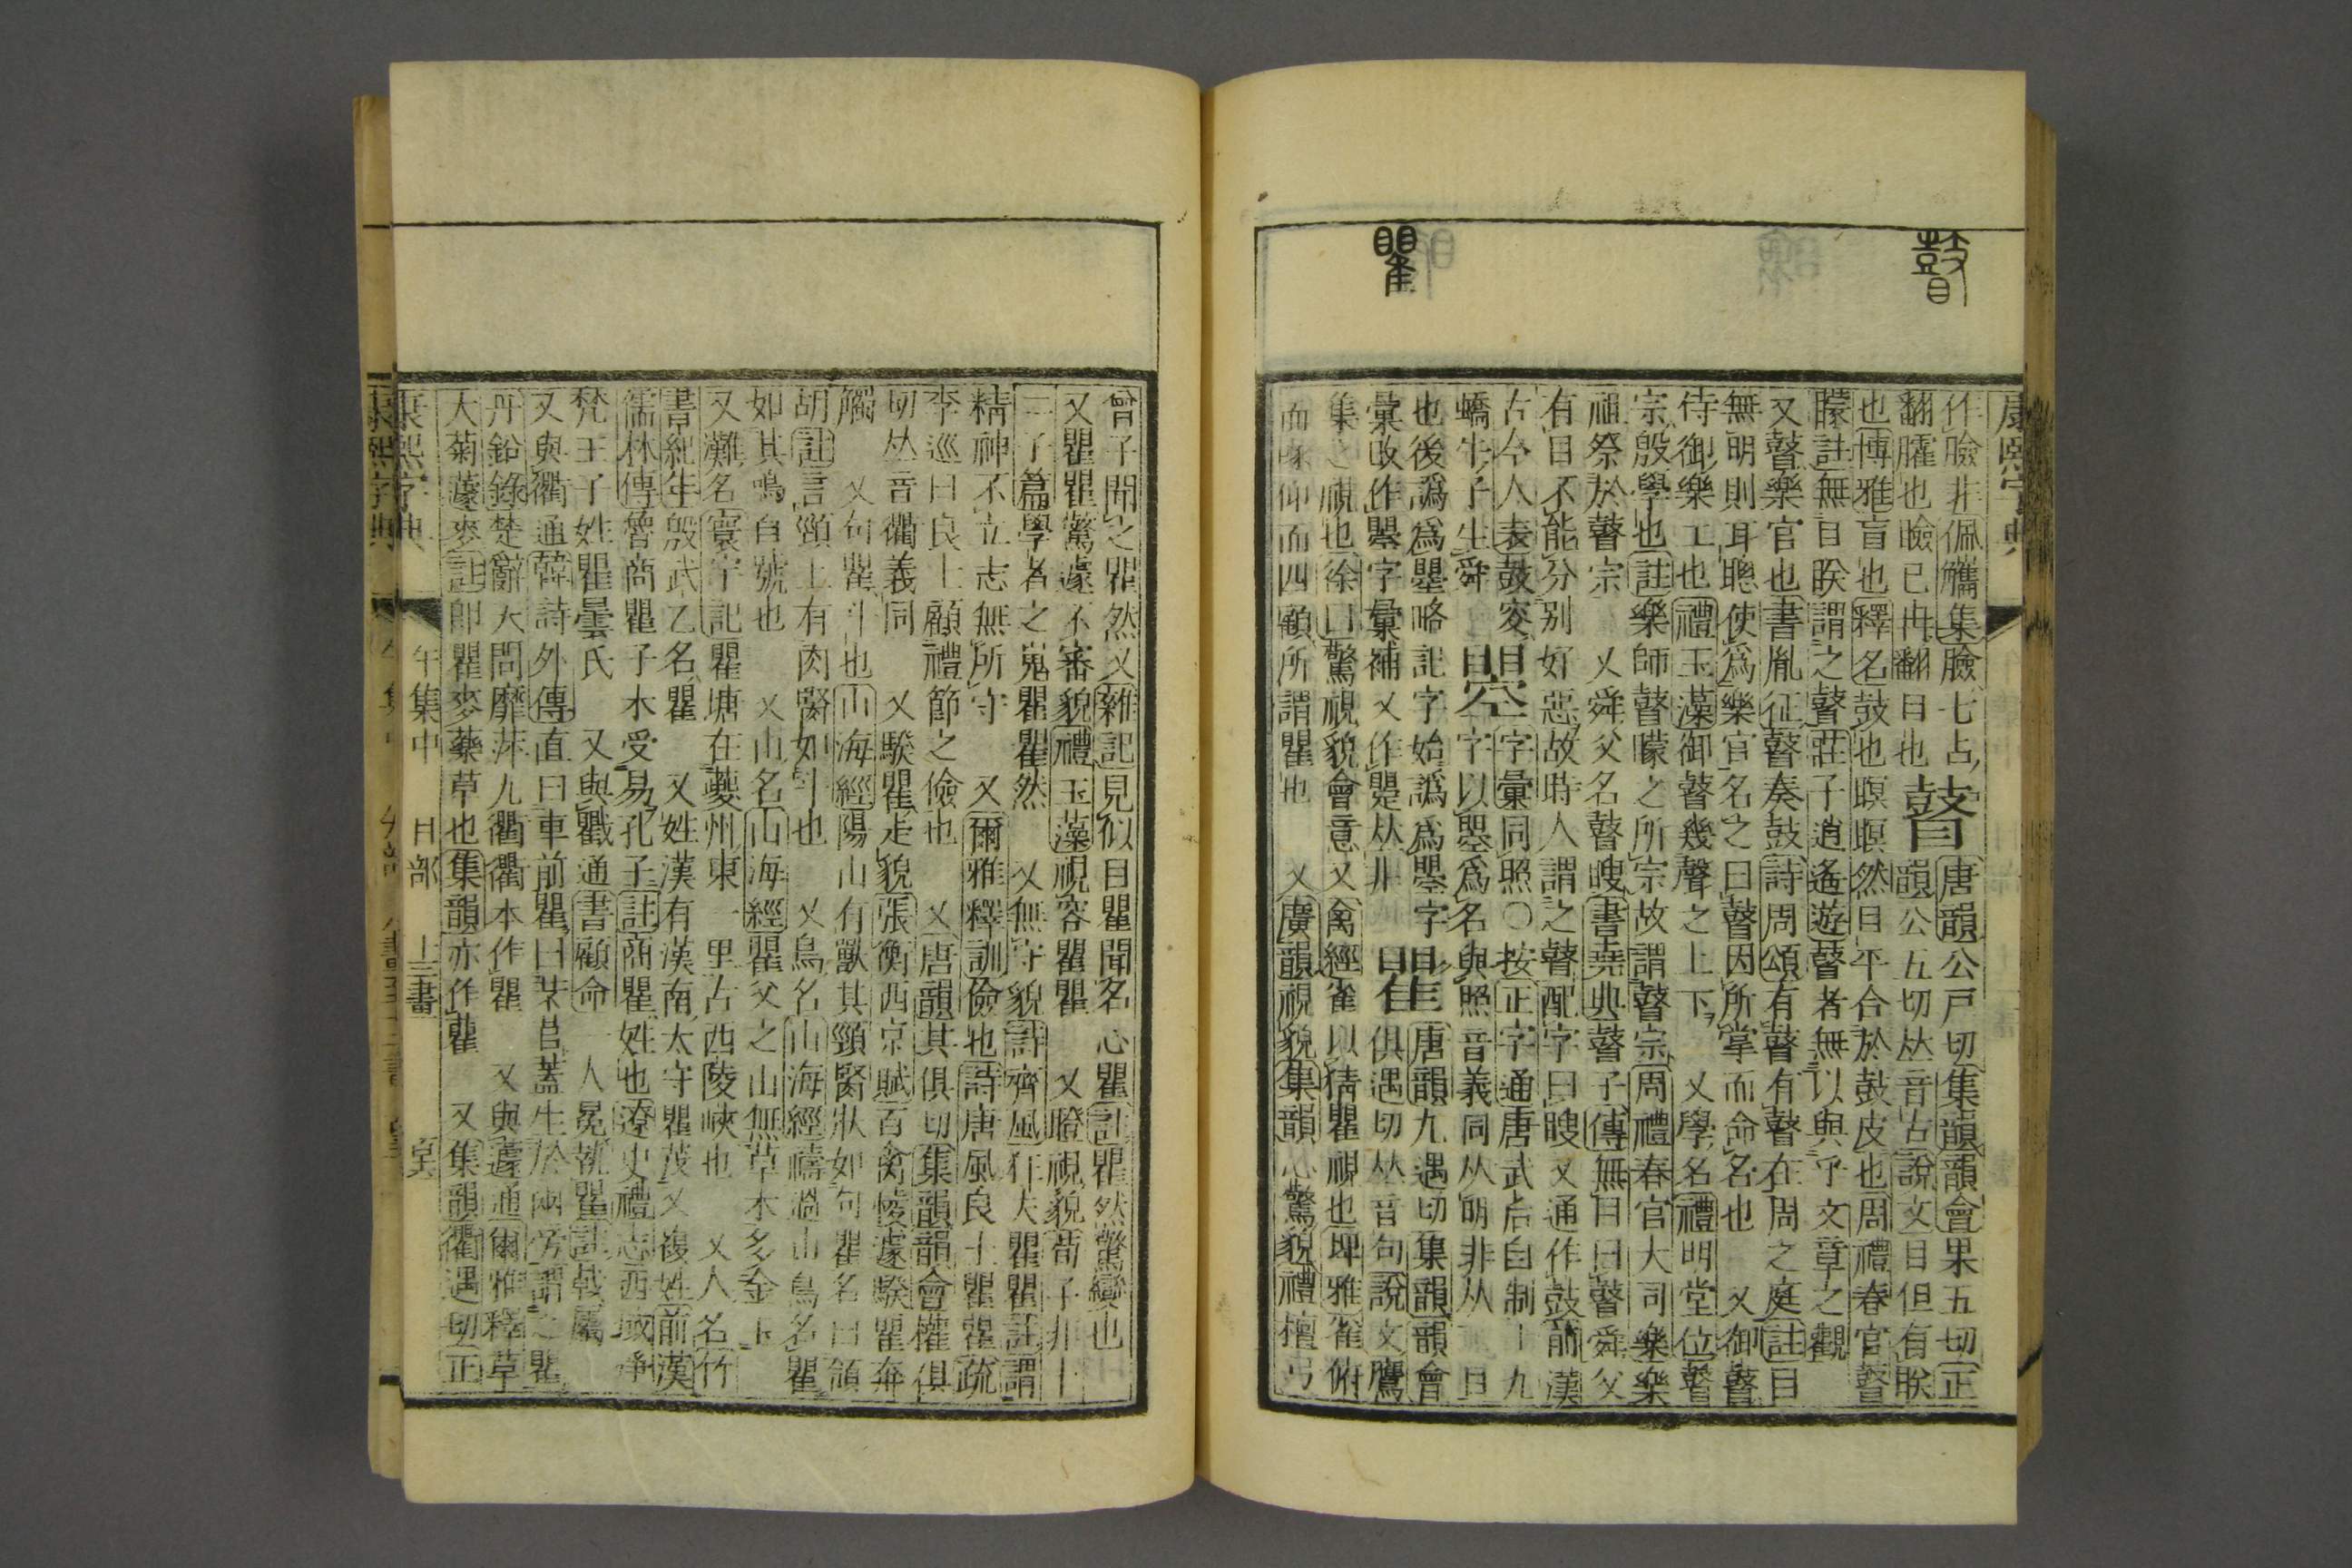 瞽
瞿
康熙字典
作瞼非佩觿集臉七占
翻臛也瞼已冉翻目也
瞽
唐韻公戸切集韻韻會果五切正
韻公五切𠀤音古說文目但有眹
也博雅盲也釋名鼓也瞑瞑然目平合於鼓皮也周禮春官瞽
矇註無目眹謂之瞽莊子逍遙遊瞽者無以與乎文章之觀
又瞽樂官也書胤征瞽奏鼓詩周頌有瞽有瞽在周之庭註目
無明則耳聰使爲樂官名之曰瞽因所掌而命名也 又御瞽
侍御樂工也禮玉藻御瞽幾聲之上下 又學名禮明堂位瞽
宗殷學也註樂師瞽矇之所宗故謂瞽宗周禮春官大司樂樂
祖祭於瞽宗 又舜父名瞽瞍書堯典瞽子傳無目曰瞽舜父
有目不能分別好惡故時人謂之瞽配字曰瞍 又通作鼓前漢
古今人表鼓叜
曌
字彙同照〇按正字通唐武后自制十九
蟜牛子生舜
字以曌爲名與照音義同从明非从目
也後譌爲瞾略記字始譌爲曌字
彙改作瞾字彙補又作曌𠀤非
瞿
唐韻九遇切集韻韻會
俱遇切𠀤音句說文鷹
隼之視也徐曰驚視貌會意 又禽經雀以猜瞿視也埤雅雀俯
而啄仰而四顧所謂瞿也 又廣韻視貌集韻心驚貌禮檀弓
曾子聞之瞿然又雜記見似目瞿聞名心瞿註瞿然驚變也
又瞿瞿驚遽不審貌禮玉藻視容瞿瞿 又瞪視貌荀子非十
二子篇學者之嵬瞿瞿然 又無守貌詩齊風狂夫瞿瞿註謂
精神不立志無所守 又爾雅釋訓儉也詩唐風良士瞿瞿疏
李巡曰良士顧禮節之儉也 又唐韻其俱切集韻韻會權俱
切𠀤音衢義同 又騤瞿走貌張衡西京賦百禽㥄遽騤瞿奔
觸 又句瞿斗也山海經陽山有獸其頸䝱狀如句瞿名曰領
胡註言頸上有肉䝱如斗也 又鳥名山海經禱過山鳥名瞿
如其鳴自號也 又山名山海經瞿父之山無草木多金玉
又灘名寰宇記瞿塘在夔州東一里古西陵峽也 又人名竹
書紀年殷武乙名瞿 又姓漢有漢南太守瞿茂又複姓前漢
儒林傳魯商瞿子木受易孔子註商瞿姓也遼史禮志西域淨
梵王子姓瞿曇氏 又與戵通書顧命一人冕執瞿註戟屬
又與衢通韓詩外傳直曰車前瞿曰芣苢蓋生於兩旁謂之瞿
丹鉛錄楚辭天問靡萍九衢衢本作瞿 又與蘧通爾雅釋草
大菊蘧麥註卽瞿麥藥草也集韻亦作蘿 又集韻衢遇切正
康熙字典 午集中 目部 十三畫
康熙字典